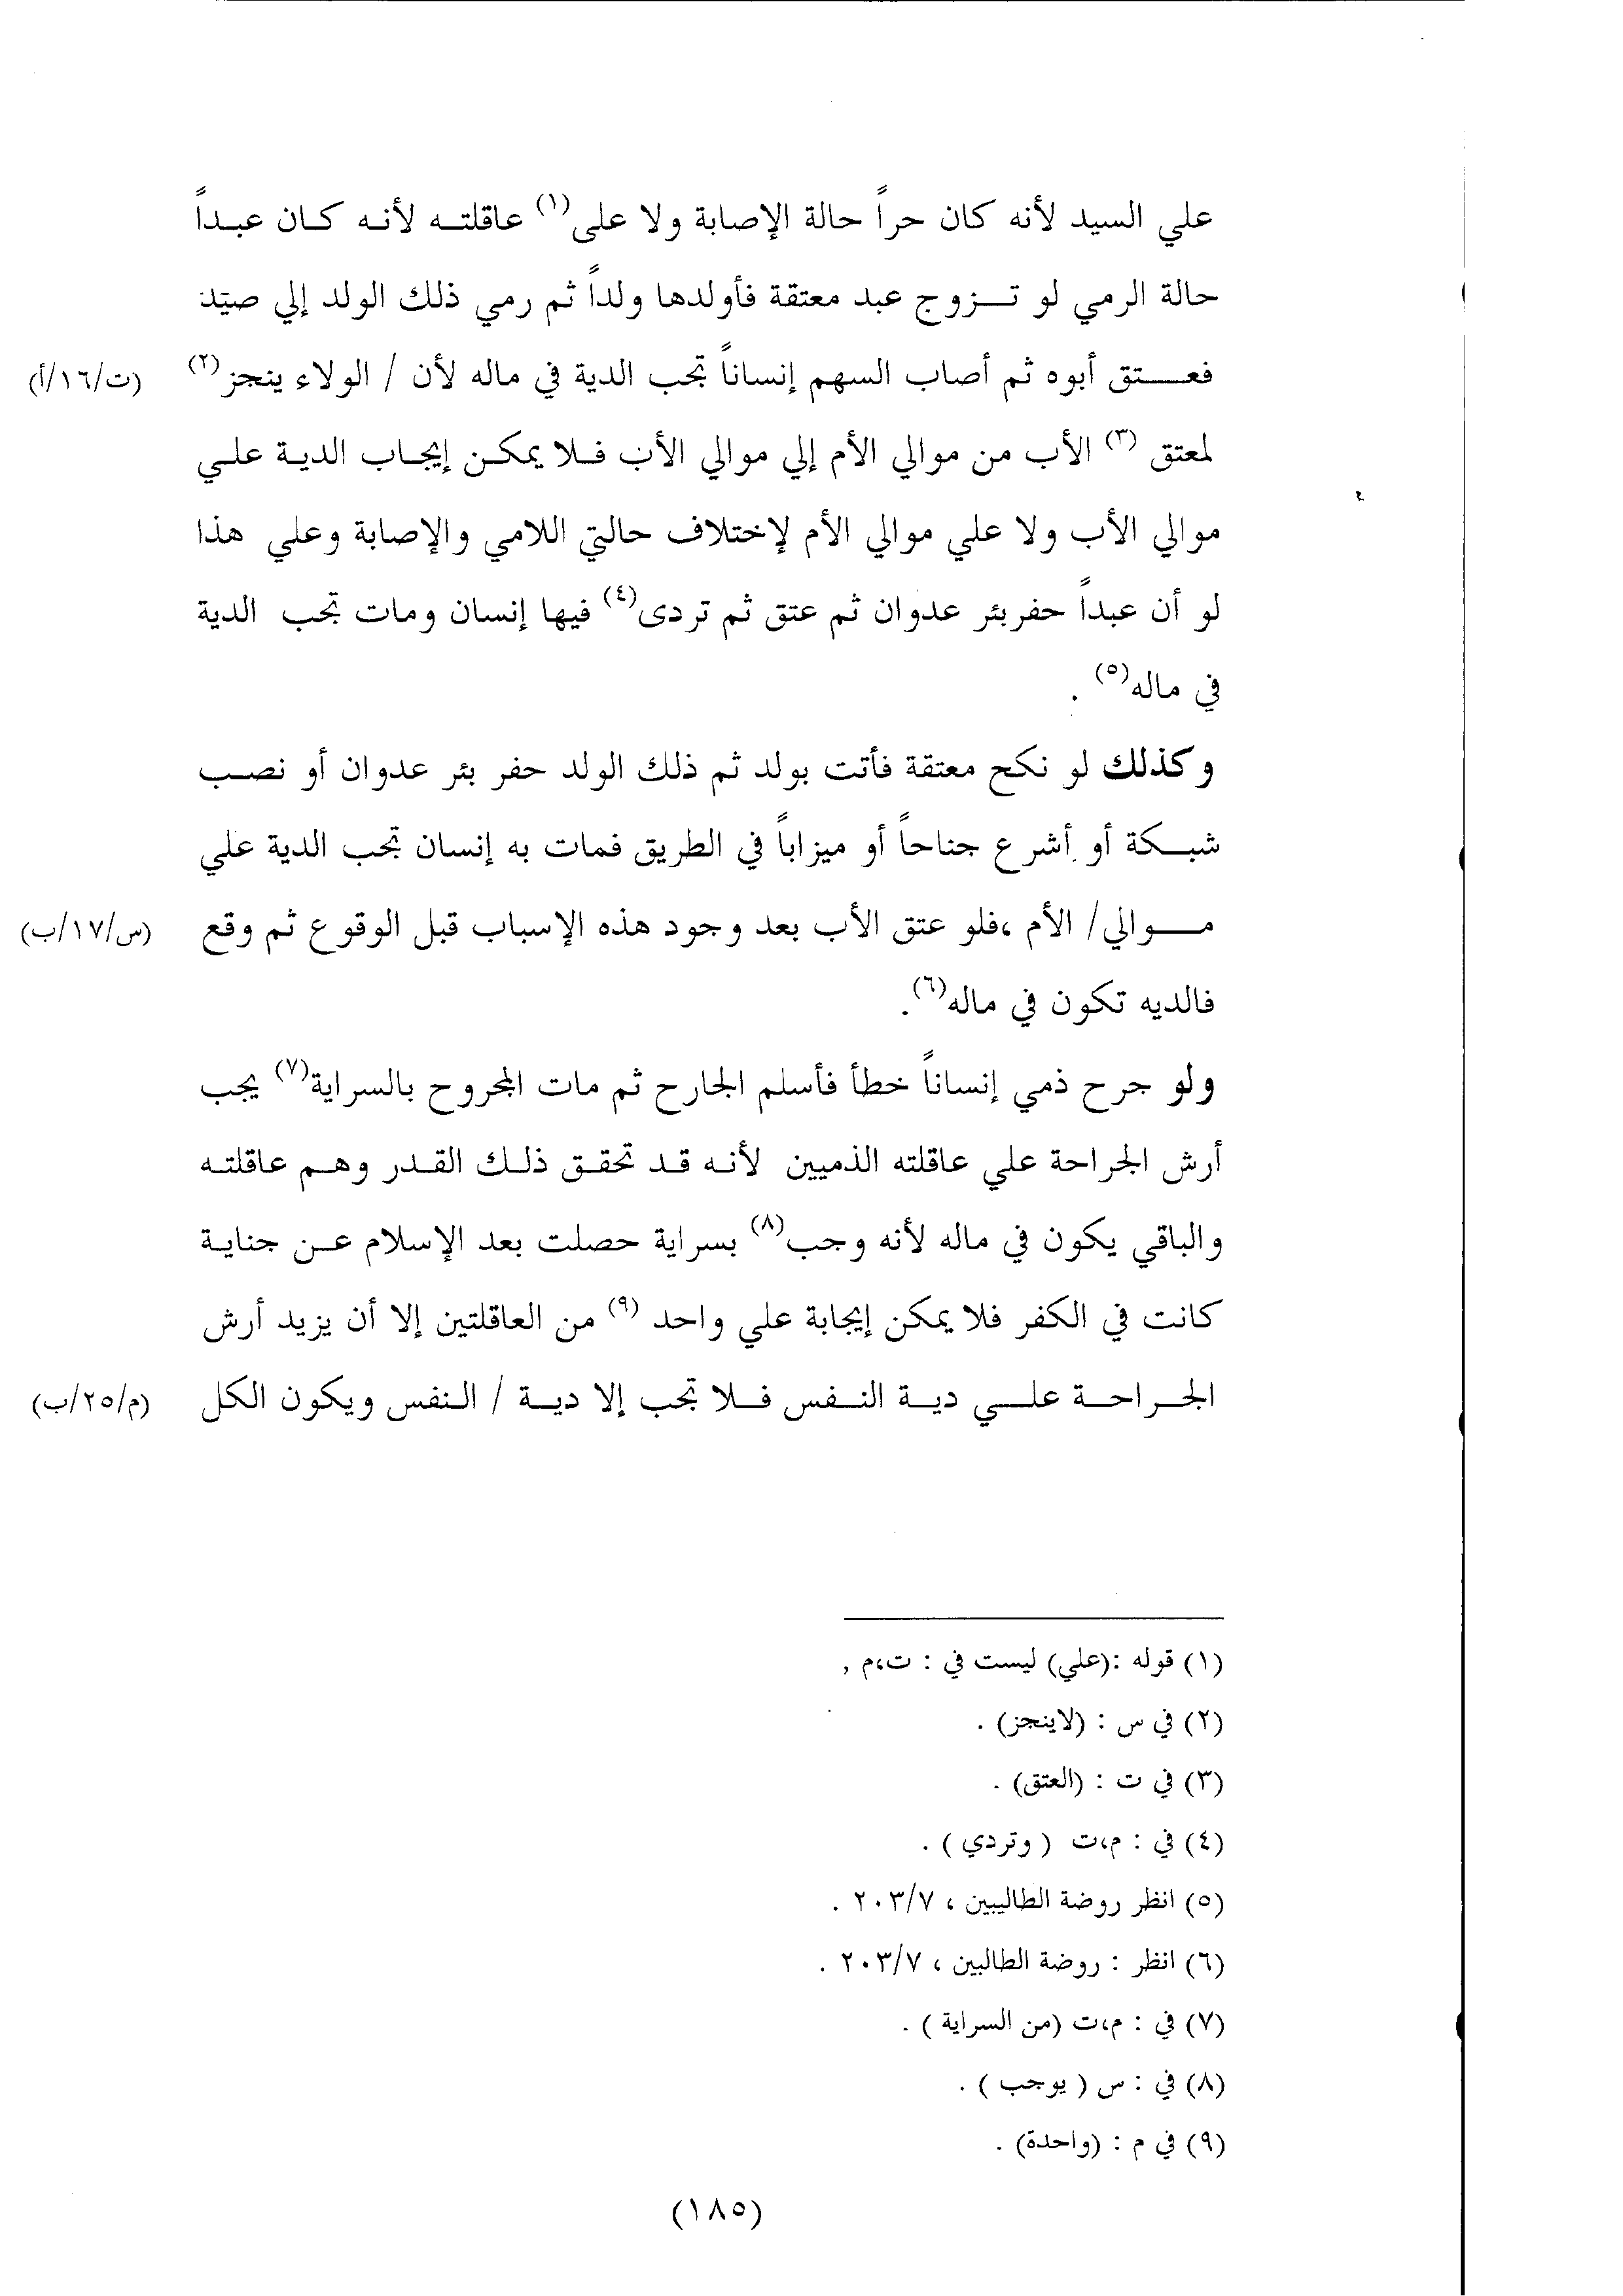 علي السيد لأنه كان حراً حالة الإصابة ولا على(١) عاقلتـه لأنـه كـان عبـداً
حالة الرمي لو تـزوج عبد معتقة فأولدها ولداً ثم رمي ذلك الولد إلي صيد
فعـتق أبوه ثم أصاب السهم إنساناً تجب الدية في ماله لأن / الولاء ينجز(٢) (ت/١٦/أ)
لمعتق (٣) الأب من موالي الأم إلي موالي الأب فـلا يمكـن إيجـاب الديـة علـي
موالي الأب ولا علي موالي الأم لإختلاف حالتي اللامي والإصابة وعلي هذا
لو أن عبداً حفربئر عدوان ثم عتق ثم تردى(٤) فيها إنسان ومات تجب الدية
في ماله(٥) .
وكذلك لو نكح معتقة فأتت بولد ثم ذلك الولد حفر بئر عدوان أو نصـب
شبـكة أو أشرع جناحاً أو ميزاباً في الطريق فمات به إنسان تجب الدية علي
مـوالي/ الأم ،فلو عتق الأب بعد وجود هذه الإسباب قبل الوقوع ثم وقع (س/١٧/ب)
فالديه تكون في ماله(٦).
ولو جرح ذمي إنساناً خطأ فأسلم الجارح ثم مات المجروح بالسراية(٧) يجب
أرش الجراحة علي عاقلته الذميين لأنـه قـد تحقـق ذلـك القـدر وهـم عاقلتـه
والباقي يكون في ماله لأنه وجب(٨) بسراية حصلت بعد الإسلام عـن جنايـة
كانت في الكفر فلا يمكن إيجابة علي واحد (٩) من العاقلتين إلا أن يزيد أرش
الجـراحـة علـي ديـة النـفس فـلا تجب إلا ديـة / النفس ويكون الكل (م/٢٥/ب)
(١) قوله :(علي) ليست في : ت،م ,
(٢) في س : (لاينجز) .
(٣) في ت : (العتق) .
(٤) في : م،ت ( وتردي ) .
(٥) انظر روضة الطالبين ، ٢٠٣/٧ .
(٦) انظر : روضة الطالبين ، ٢٠٣/٧ .
(٧) في : م،ت (من السراية ) .
(٨) في : س ( يوجب ) .
(٩) في م : (واحدة) .
(١٨٥)